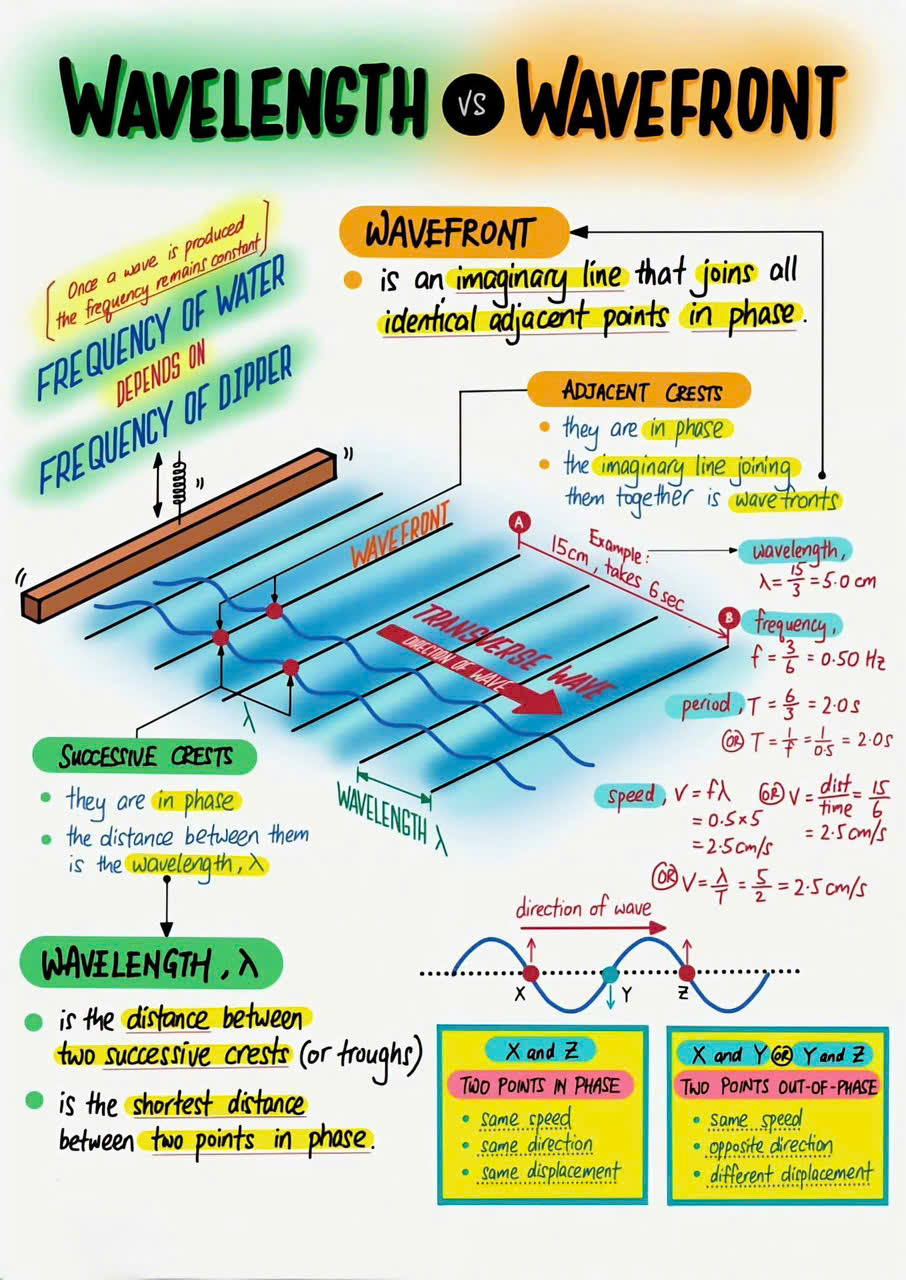 WAVELENGTH VS WAVEFRONT
[Once a wave is produced
the frequency remains constant]
FREQUENCY OF WATER
DEPENDS ON
FREQUENCY OF DIPPER
WAVEFRONT
• is an imaginary line that joins all
identical adjacent points in phase.
ADJACENT CRESTS
• they are in phase
• the imaginary line joining
them together is wavefronts
WAVEFRONT
A
Example:
15cm, takes 6 sec
B
TRANSVERSE WAVE
DIRECTION OF WAVE
λ
WAVELENGTH λ
wavelength,
λ = 15/3 = 5.0 cm
frequency,
f = 3/6 = 0.50 Hz
period, T = 6/3 = 2.0s
OR T = 1/f = 1/0.5 = 2.0s
speed, V = fλ
= 0.5 × 5
= 2.5 cm/s
OR V = dist/time = 15/6
= 2.5 cm/s
OR V = λ/T = 5/2 = 2.5 cm/s
SUCCESSIVE CRESTS
• they are in phase
• the distance between them
is the wavelength, λ
WAVELENGTH, λ
• is the distance between
two successive crests (or troughs)
• is the shortest distance
between two points in phase.
direction of wave
X Y Z
X and Z
TWO POINTS IN PHASE
• same speed
• same direction
• same displacement
X and Y OR Y and Z
TWO POINTS OUT-OF-PHASE
• same speed
• opposite direction
• different displacement